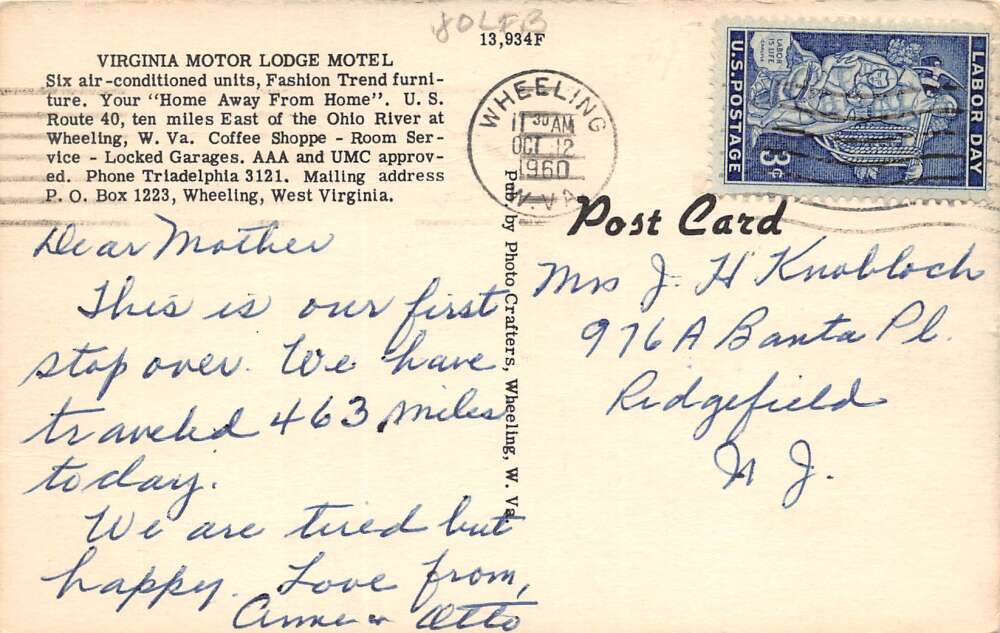 JOLFB
13,934F
VIRGINIA MOTOR LODGE MOTEL
Six air-conditioned units, Fashion Trend furni-
ture. Your "Home Away From Home". U. S.
Route 40, ten miles East of the Ohio River at
Wheeling, W. Va. Coffee Shoppe - Room Ser-
vice - Locked Garages. AAA and UMC approv-
ed. Phone Triadelphia 3121. Mailing address
P. O. Box 1223, Wheeling, West Virginia.
WHEELING
11 30 AM
OCT 12
1960
W. VA.
LABOR DAY
LABOR
IS LIFE
CARLYLE
U.S. POSTAGE
3¢
Post Card
Pub. by Photo Crafters, Wheeling, W. Va.
Dear Mother
This is our first
stop over. We have
traveled 463 miles
today.
We are tired but
happy. Love from,
Anne & Otto
Mrs J. H Knobloch
976A Banta Pl.
Ridgefield
N J.